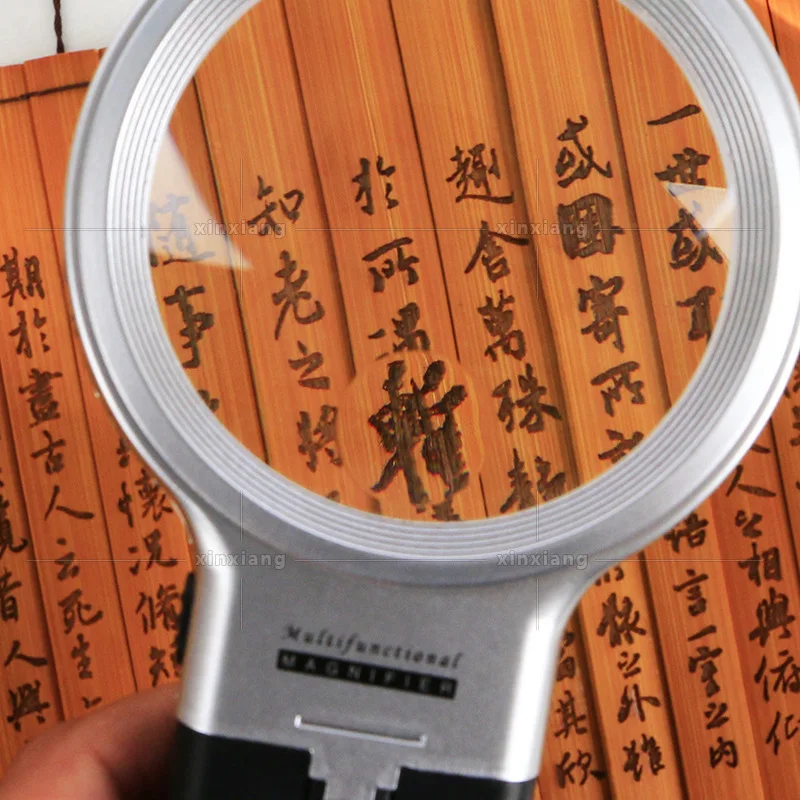 人之相與俯仰
一世或取
悟言一室之内
或因寄所託
骸之外雖
趣舍萬殊静
當其欣
於所遇暫
知老之將
隨事
懷況脩短
期於盡古人云死生
覽昔人興
Multifunctional
MAGNIFIER
xinxiang
xinxiang
xinxiang
xinxiang